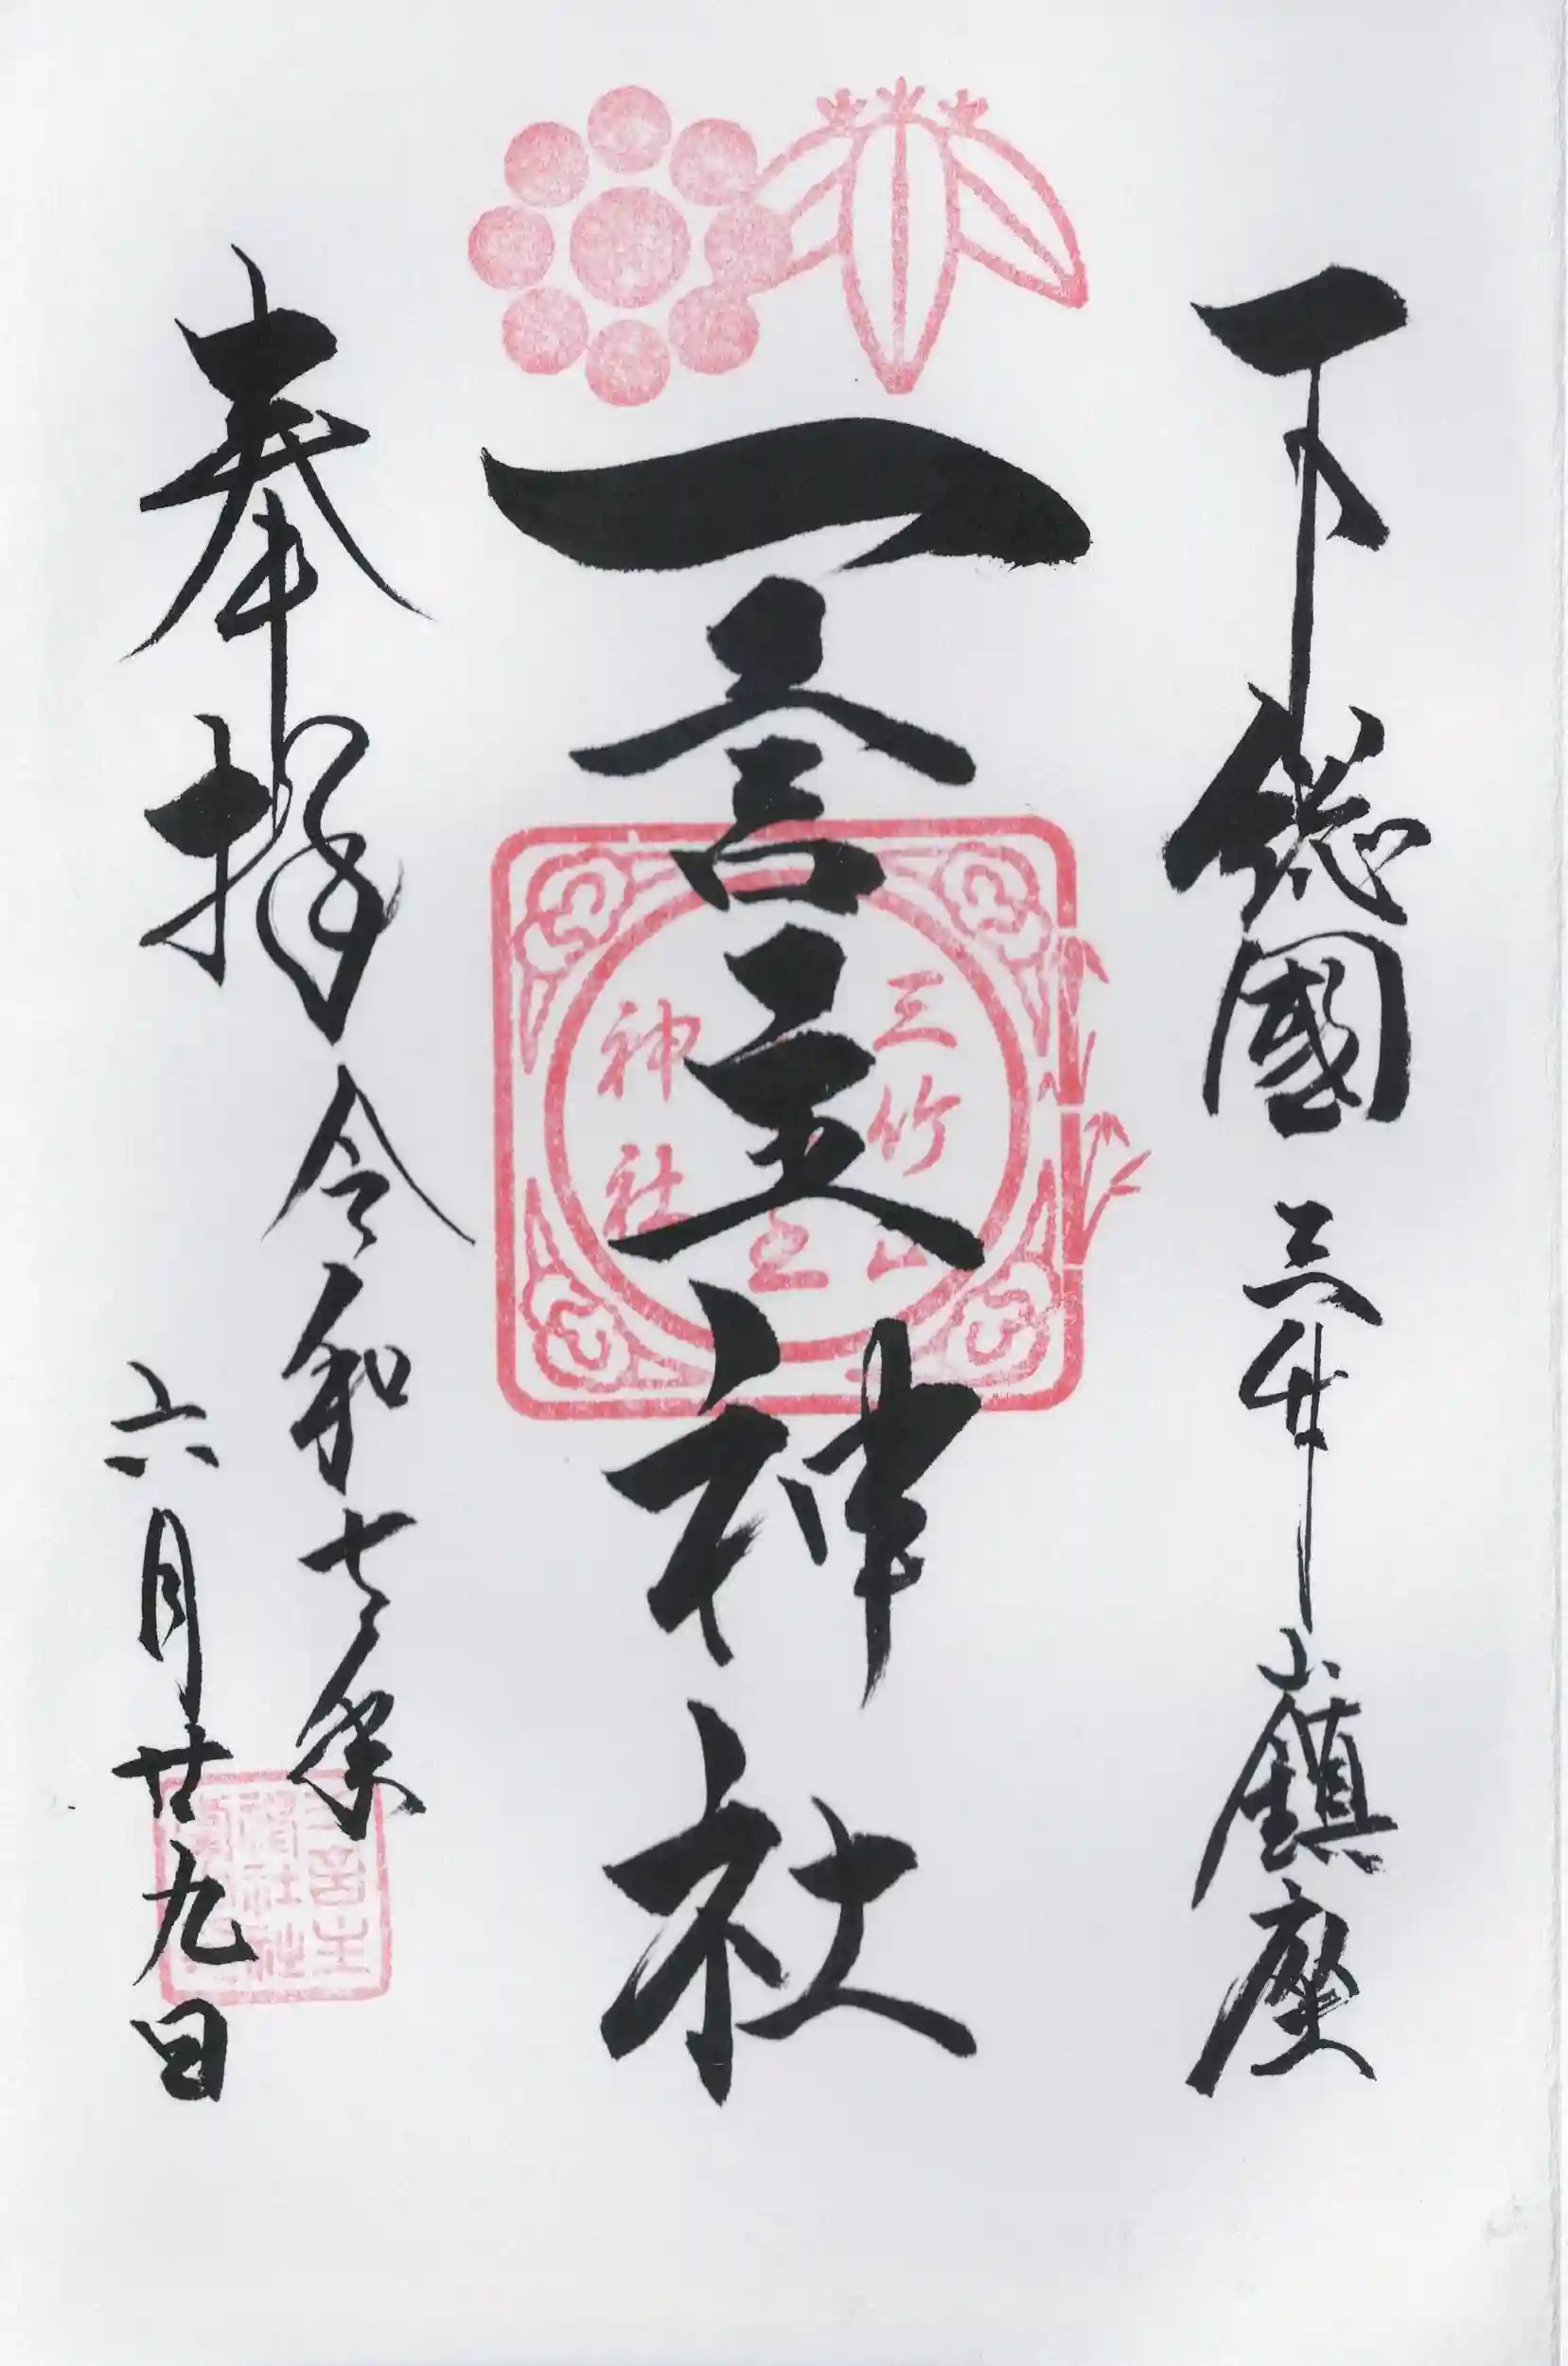 下總國 三竹山鎮座
一言主神社
三竹山
主
神社
奉拝 令和七年
六月廿九日